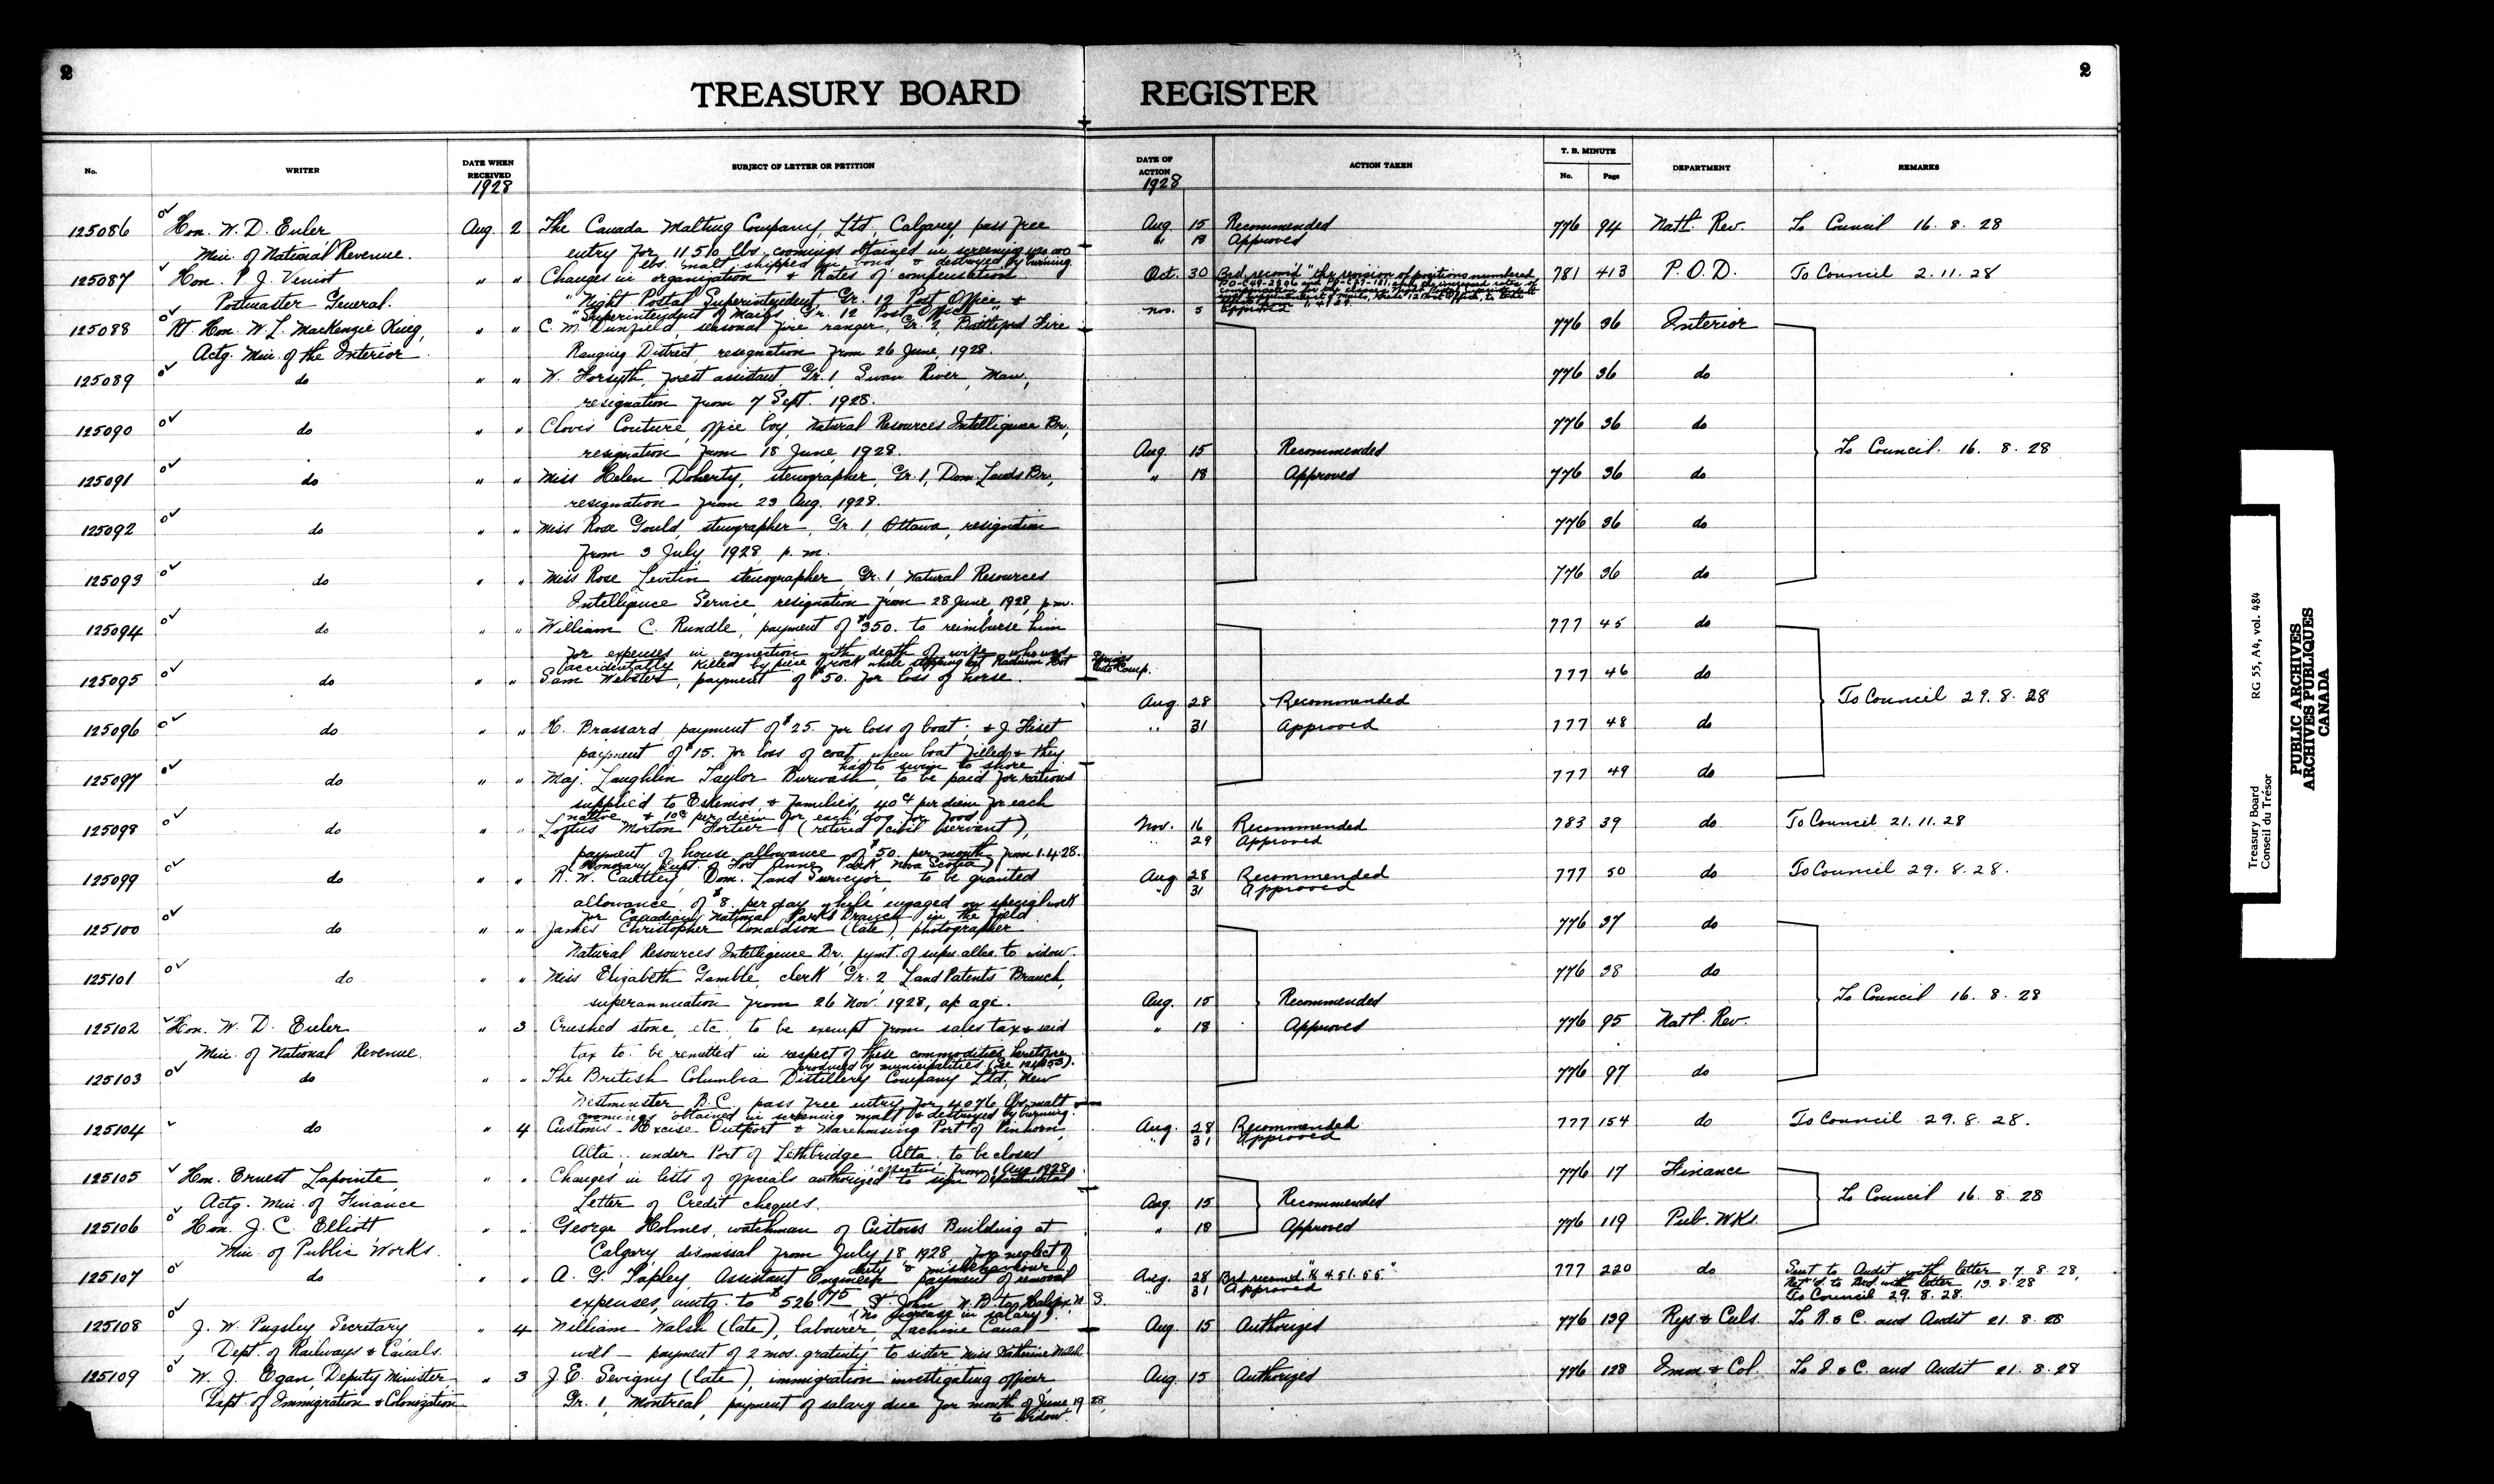 2
2
TREASURY BOARD REGISTER
No. WRITER DATE WHEN RECEIVED SUBJECT OF LETTER OR PETITION DATE OF ACTION ACTION TAKEN T. B. MINUTE No. Page DEPARTMENT REMARKS
1928 1928
125086 Hon. W. D. Euler Aug. 2 The Canada Malting Company, Ltd, Calgary, pass free Aug. 15 Recommended 776 94 Natl. Rev. To Council 16. 8. 28
Min. of National Revenue. entry for 11510 lbs. coomings obtained in screening " 18 Approved
lbs. malt shipped in bond & destroyed by burning.
125087 Hon. P. J. Veniot " " Changes in organization & Rates of compensation Oct. 30 Brd. recom'd "the revision of positions numbered 781 413 P.O.D. To Council 2. 11. 28
Postmaster General. "Night Postal Superintendent, Gr. 12 Post Office &
"Superintendent of Mails, Gr. 12 Post Office" Nov. 5 Approved
125088 Rt. Hon. W. L. MacKenzie King, " " C. M. Dunfield, seasonal fire ranger, Gr. 2, Battleford Fire 776 36 Interior
Actg. Min. of the Interior Ranging District, resignation from 26 June, 1928.
125089 do " " W. Forsyth, forest assistant Gr. 1, Swan River, Man., 776 36 do
resignation from 7 Sept. 1928.
125090 do " " Clovis Couture, office boy, Natural Resources Intelligence Br., 776 36 do
resignation from 18 June, 1928. Aug. 15 Recommended To Council. 16. 8. 28
125091 do " " Miss Helen Doherty, stenographer, Gr. 1, Dom. Lands Br., " 18 Approved 776 36 do
resignation from 23 Aug. 1928.
125092 do " " Miss Rose Gould, stenographer, Gr. 1, Ottawa, resignation 776 36 do
from 3 July, 1928 p. m.
125093 do " " Miss Rose Levitin stenographer, Gr. 1 Natural Resources 776 36 do
Intelligence Service, resignation from 28 June, 1928, p.m.
125094 do " " William C. Rundle, payment of $350. to reimburse him 777 45 do
for expenses in connection with death of wife, who was
accidentally killed by piece of rock while stopping at Radium Hot Springs Auto Camp.
125095 do " " Sam Webster, payment of $50. for loss of horse. 777 46 do
Aug. 28 Recommended To Council 29. 8. 28
125096 do " " H. Brassard, payment of $25. for loss of boat; & J. Fiset " 31 Approved 777 48 do
payment of $15. for loss of coat, when boat filled & they
had to swim to shore
125097 do " " Maj. Laughlin Taylor Burwash, to be paid for rations 777 49 do
supplied to Eskimos & families, 40¢ per diem for each
native & 10¢ per diem for each dog for food
125098 do " " Loftus Morton Fortier (retired civil servant), Nov. 16 Recommended 783 39 do To Council 21. 11. 28
payment of house allowance of $50. per month, from 1.4.28. " 29 Approved
(Honorary Supt. of Fort Anne Park Nova Scotia)
125099 do " " R. W. Cautley, Dom. Land Surveyor, to be granted Aug. 28 Recommended 777 50 do To Council 29. 8. 28.
allowance of $8. per day while engaged on special work " 31 Approved
for Canadian National Parks Branch in the field
125100 do " " James Christopher Donaldson (late), photographer 776 37 do
Natural Resources Intelligence Br., pymt. of supn. allce. to widow.
125101 do " " Miss Elizabeth Gamble, clerk Gr. 2, Land Patents Branch, 776 38 do
superannuation from 26 Nov. 1928, a/c age. Aug. 15 Recommended To Council 16. 8. 28
125102 Hon. W. D. Euler " 3 Crushed stone, etc. to be exempt from sales tax & said " 18 Approved 776 95 Natl. Rev.
Min. of National Revenue. tax to be remitted in respect of these commodities heretofore
produced by municipalities
125103 do " " The British Columbia Distillery Company Ltd, New 776 97 do
Westminster B.C. pass free entry for 4076 lbs. malt
coomings obtained in screening malt & destroyed by burning.
125104 do " 4 Customs-Excise Outport & Warehousing Port of Pinhorn, Aug. 28 Recommended 777 154 do To Council 29. 8. 28.
Alta. under Port of Lethbridge Alta. to be closed " 31 Approved
effective from 1 Aug. 1928
125105 Hon. Ernest Lapointe " " Changes in lists of officials authorized to sign Departmental 776 17 Finance
Actg. Min. of Finance Letter of Credit cheques. Aug. 15 Recommended To Council 16. 8. 28
125106 Hon. J. C. Elliott " " George Holmes, watchman of Customs Building at " 18 Approved 776 119 Pub. Wks.
Min. of Public Works. Calgary, dismissal from July 18 1928 for neglect of
duty & misbehaviour
125107 do " " A. G. Tapley Assistant Engineer payment of removal Aug. 28 Brd. recomd. "$451.55" 777 220 do Sent to Audit with letter 7. 8. 28,
expenses, amtg. to $526.75 St. John N. B. to Halifax N S. " 31 Approved Ret'd. to Brd. with letter 13. 8. 28
(no increase in salary). To Council 29. 8. 28.
125108 J. W. Pugsley Secretary " 4 William Walsh (late), labourer, Lachine Canal Aug. 15 Authorized 776 139 Rys. & Cnls. To R. & C. and Audit 21. 8. 28
Dept. of Railways & Canals. will - payment of 2 mos. gratuity to sister Miss Katherine Walsh.
125109 W. J. Egan, Deputy Minister " 3 J. E. Sevigny (late), immigration investigating officer, Aug. 15 Authorized 776 128 Imm. & Col. To I. & C. and Audit 21. 8. 28
Dept. of Immigration & Colonization Gr. 1, Montreal, payment of salary due for month of June, 1928,
to widow.
Treasury Board RG 55, A4, vol. 484
Conseil du Trésor
PUBLIC ARCHIVES
ARCHIVES PUBLIQUES
CANADA